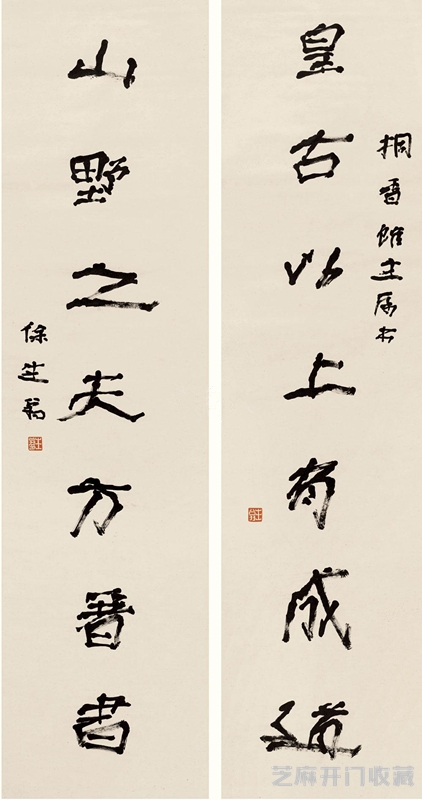 桐香館主屬書
皇古以上有成道
山野之夫方書
徐生翁
芝麻开门收藏